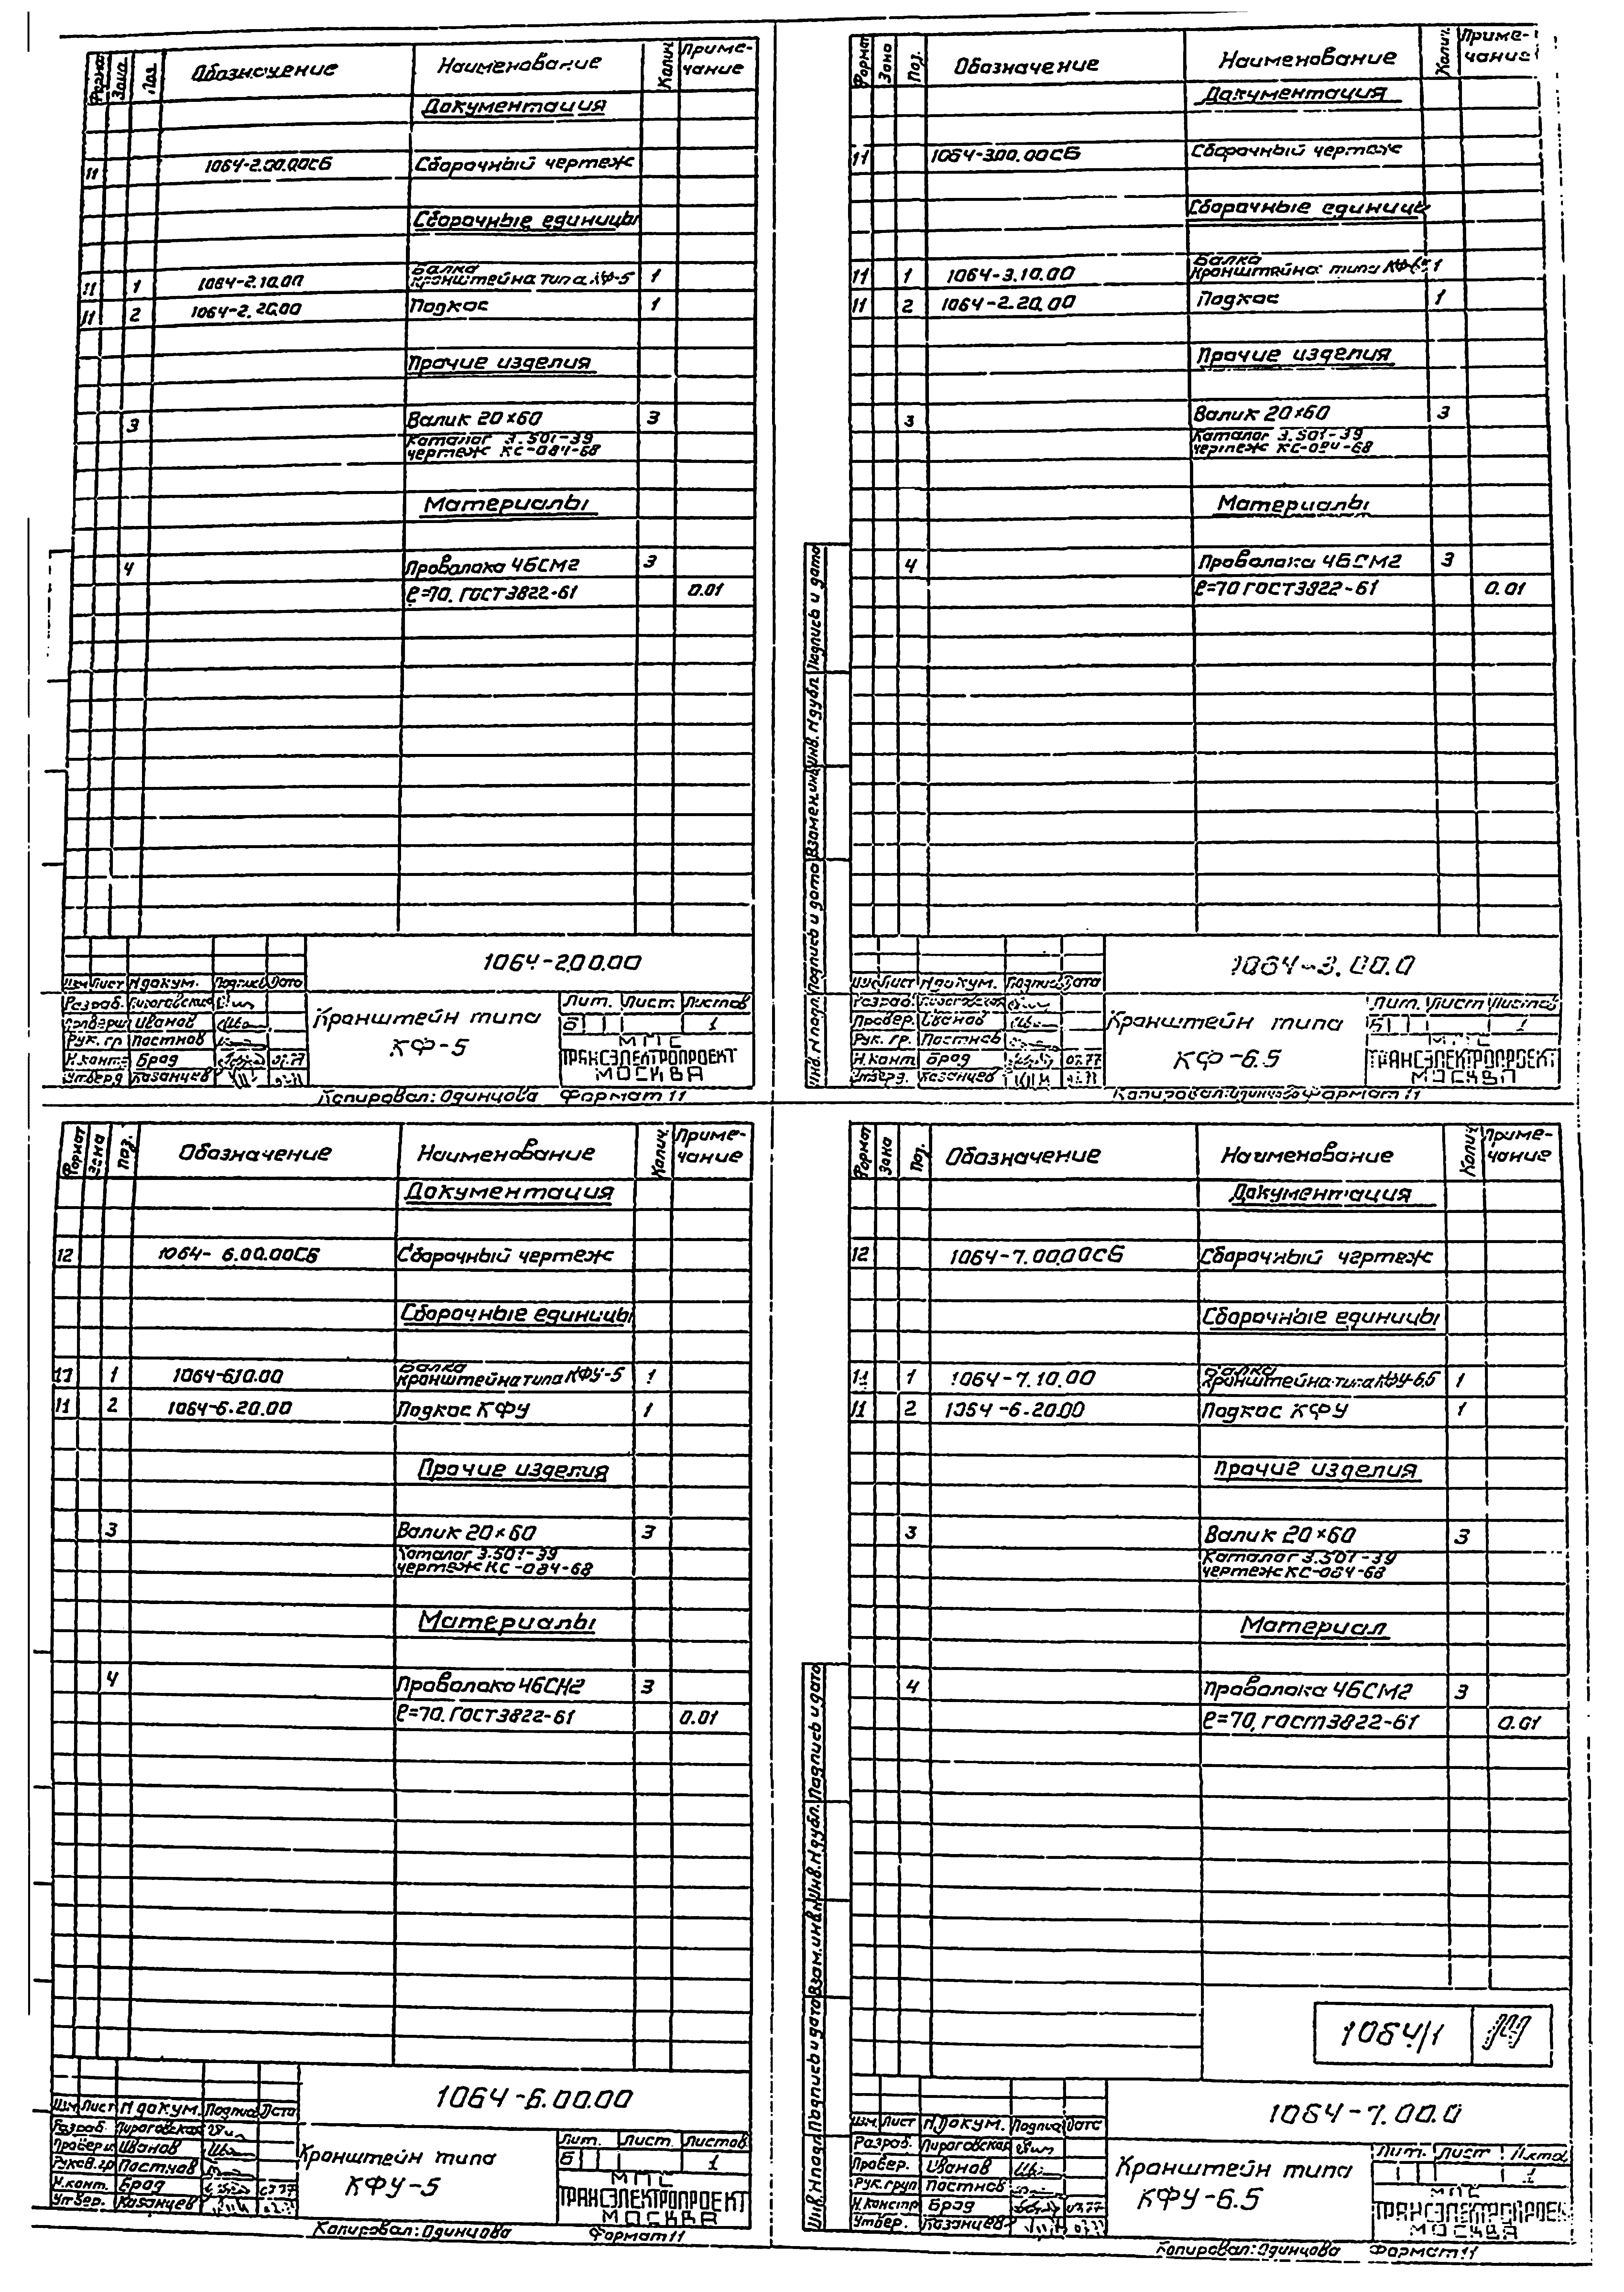 Формат Зона Поз. Обозначение Наименование Колич. Приме-
чание
Документация
11 1064-2.00.00СБ Сборочный чертеж
Сборочные единицы
Балка
11 1 1064-2.10.00 кронштейна типа КФ-5 1
11 2 1064-2.20.00 Подкос 1
Прочие изделия
3 Валик 20×60 3
Каталог 3.501-39
чертеж КС-084-68
Материалы
4 Проволока 4БСМ2 3
ℓ=70. ГОСТ 3822-61 0.01
1064-2.00.00
Изм Лист N докум. Подпись Дата
Разраб. Пироговская
Проверил Иванов
Рук. гр. Постнов
Н.конт. Брод 07.77
Утверд. Казанцев
Кронштейн типа
КФ-5
Лит. Лист. Листов
Б 1
МПС
ТРАНСЭЛЕКТРОПРОЕКТ
МОСКВА
Копировал: Одинцова Формат 11
Формат Зона Поз. Обозначение Наименование Колич. Приме-
чание
Документация
11 1064-3.00.00СБ Сборочный чертеж
Сборочные единицы
Балка
11 1 1064-3.10.00 кронштейна типа 1
11 2 1064-2.20.00 Подкос 1
Прочие изделия
3 Валик 20×60 3
Каталог 3.501-39
чертеж КС-084-68
Материалы
4 Проволока 4БСМ2 3
ℓ=70 ГОСТ 3822-61 0.01
Инв. N подл. Подпись и дата Взамен.инв Инв. N дубл. Подпись и дата
1064-3.00.0
Изм Лист N докум. Подпись Дата
Разраб. Пироговская
Провер. Иванов
Рук. гр. Постнов
Н.конт Брод 07.77
Утверд. Казанцев
Кронштейн типа
КФ-6.5
Лит. Лист Листов
Б 1
МПС
ТРАНСЭЛЕКТРОПРОЕКТ
МОСКВА
Копировал: Одинцова Формат 11
Формат Зона Поз. Обозначение Наименование Колич. Приме-
чание
Документация
12 1064-6.00.00СБ Сборочный чертеж
Сборочные единицы
Балка
11 1 1064-6.10.00 кронштейна типа КФУ-5 1
11 2 1064-6.20.00 Подкос КФУ 1
Прочие изделия
3 Валик 20×60 3
Каталог 3.501-39
чертеж КС-084-68
Материалы
4 Проволока 4БСМ2 3
ℓ=70. ГОСТ 3822-61 0.01
1064-6.00.00
Изм. Лист N докум. Подпись Дата
Разраб. Пироговская
Провер. Иванов
Руков.гр Постнов
Н.конт. Брод 07.77
Утвер. Казанцев
Кронштейн типа
КФУ-5
Лит. Лист. Листов
Б 1
МПС
ТРАНСЭЛЕКТРОПРОЕКТ
МОСКВА
Копировал: Одинцова Формат 11
Формат Зона Поз. Обозначение Наименование Колич. Приме-
чание
Документация
12 1064-7.00.00СБ Сборочный чертеж
Сборочные единицы
Балка
11 1 1064-7.10.00 кронштейна типа КФУ-6.5 1
11 2 1064-6.20.00 Подкос КФУ 1
Прочие изделия
3 Валик 20×60 3
Каталог 3.501-39
чертеж КС-084-68
Материал
4 Проволока 4БСМ2 3
ℓ=70, ГОСТ 3822-61 0.01
Инв. N подл. Подпись и дата Взам.инв.N Инв. N дубл. Подпись и дата
1064/1
1064-7.00.0
Изм. Лист N. Докум. Подпись Дата
Разраб. Пироговская
Провер. Иванов
Рук.груп Постнов
Н.констр Брод 07.77
Утвер. Казанцев
Кронштейн типа
КФУ-6.5
Лит. Лист
1
МПС
ТРАНСЭЛЕКТРОПРОЕКТ
МОСКВА
Копировал: Одинцова Формат 11